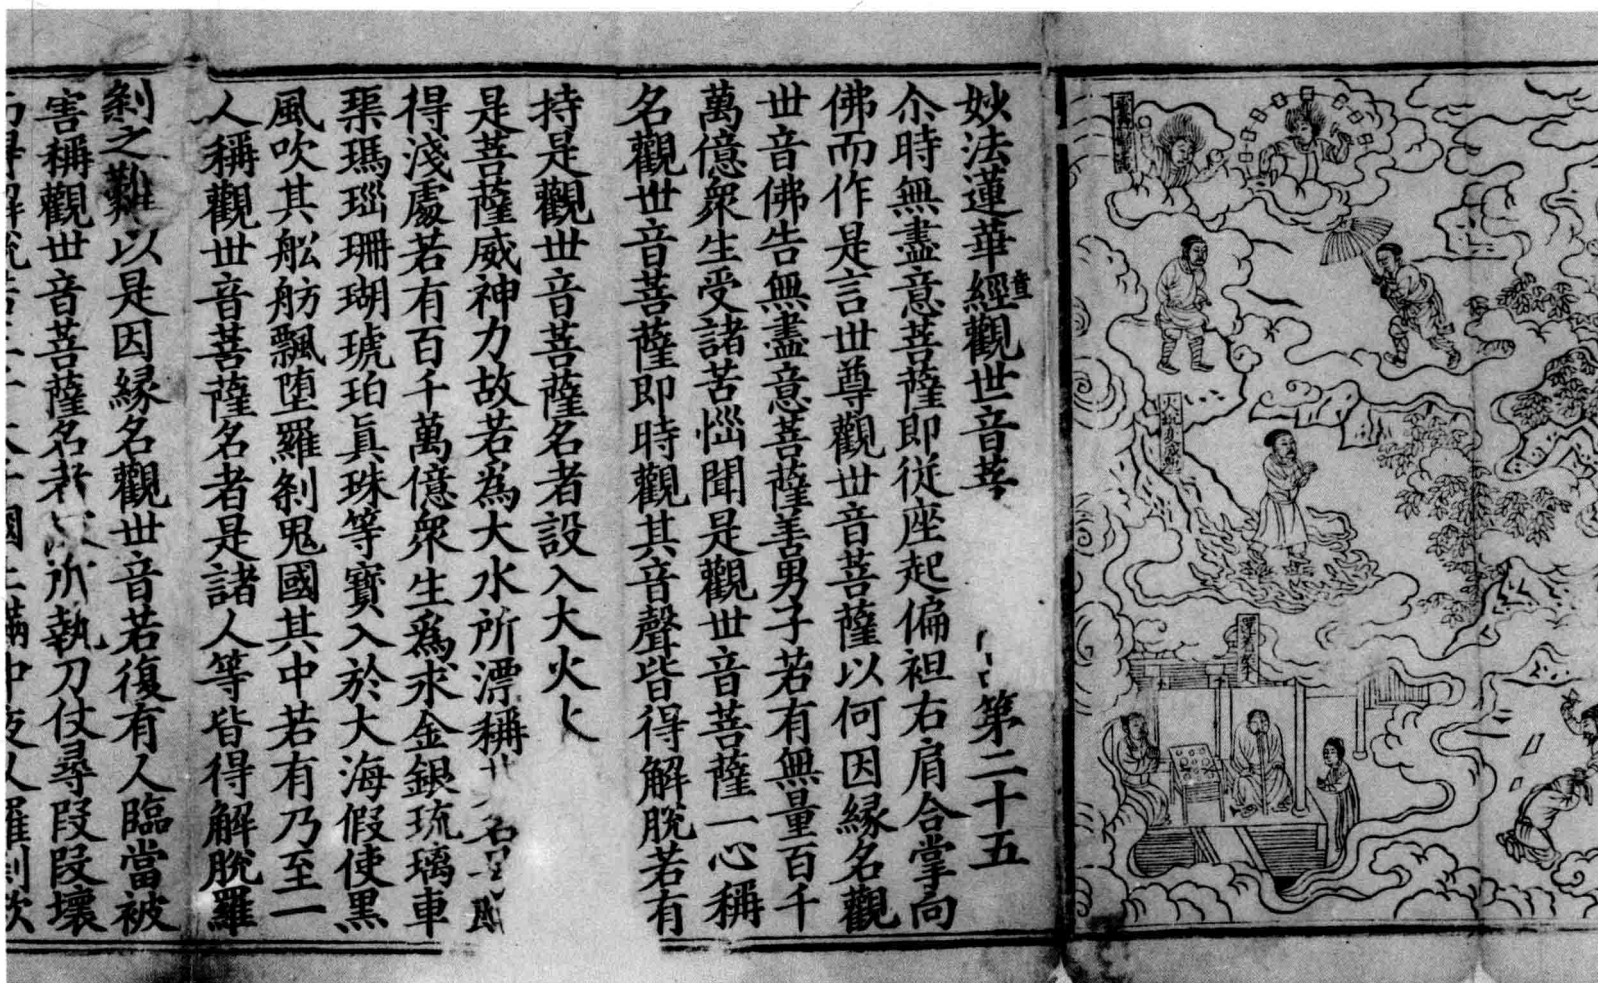 妙法蓮華經觀世音菩 第二十五
尒時無盡意菩薩即從座起偏袒右肩合掌向
佛而作是言世尊觀世音菩薩以何因緣名觀
世音佛告無盡意菩薩善男子若有無量百千
萬億衆生受諸苦惱聞是觀世音菩薩一心稱
名觀世音菩薩即時觀其音聲皆得解脫若有
持是觀世音菩薩名者設入大火
是菩薩威神力故若為大水所漂稱 名
得淺處若有百千萬億衆生為求金銀琉璃車
渠瑪瑙珊瑚琥珀眞珠等寶入於大海假使黒
風吹其舩舫飄堕羅刹鬼國其中若有乃至一
人稱觀世音菩薩名者是諸人等皆得解脫羅
刹之難以是因緣名觀世音若復有人臨當被
害稱觀世音菩薩名者 所執刀仗尋段段壞